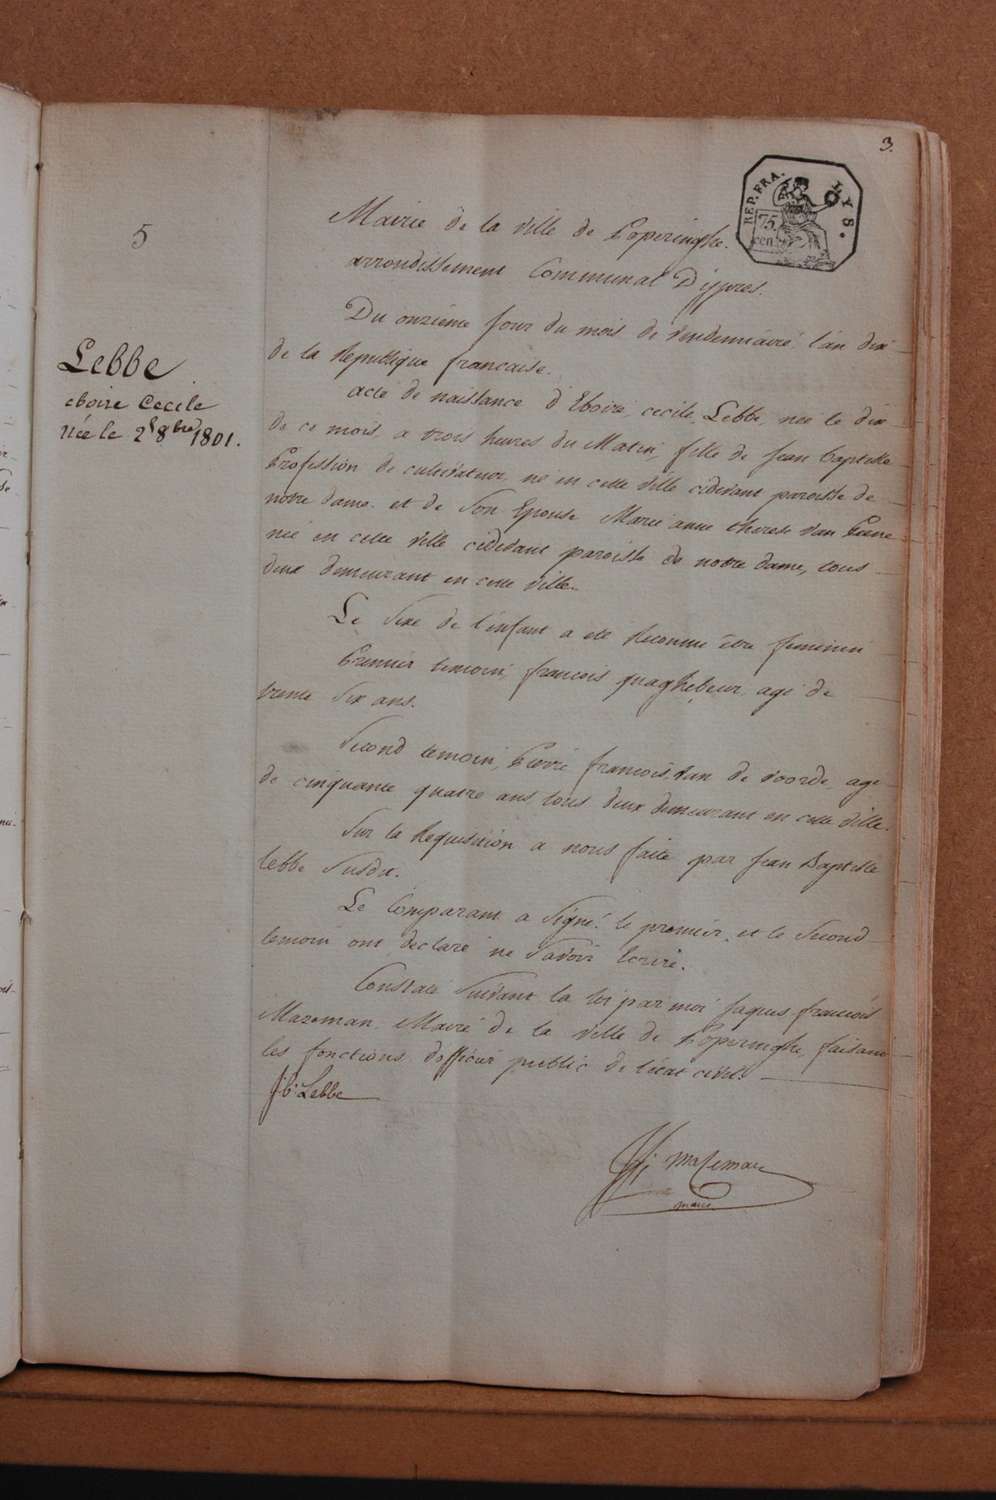 3.
REP. FRA.
LYS.
75
cen.
5
Mairie de la ville de Poperinghe.
arrondissement Communal D'ypres.
Du onzième jour du mois de vendemiaire, l'an dix
de la Republique francaise.
Lebbe
eboire Cecile
née le 2 8bre 1801.
acte de naissance d'Eboire, cecile, Lebbe, née le dix
de ce mois, a trois heures du Matin, fille de Jean baptiste
Profession de cultivateur, né en cette ville cidevant paroisse de
notre dame. et de Son Epouse Marie anne therese van
née en cette ville cidevant paroisse de notre dame, tous
deux demeurant en cette ville.
Le Sexe de l'enfant a eté Reconnu être feminin
Premier temoin, francois quaghebeur, agé de
trente Six ans.
Second temoin, Pierre francois Van de voorde, age
de cinquante quatre ans, tous deux demeurant en cette ville.
Sur la Requisition a nous faite par Jean Baptiste
lebbe Susdit.
Le Comparant a Signé. le premier et le Second
temoin ont declaré ne Savoir Ecrire.
Constaté Suivant la loi par moi Jaques francois
Mazeman, Maire de la ville de Poperinghe, faisant
les fonctions d'officier public de l'etat civil.
J. b. Lebbe
Mazeman
maire.